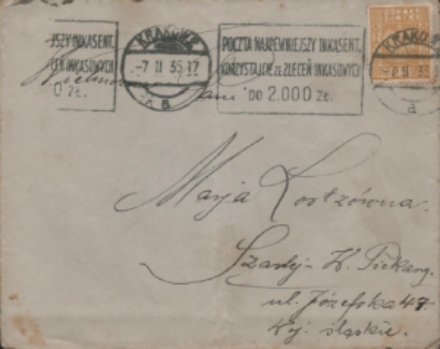 JSZY INKASENT.
CEŃ INKASOWYCH
0 ZŁ.
KRAKÓW
-7 II 35 17
POCZTA NAJPEWNIEJSZY INKASENT.
KORZYSTAJCIE ZE ZLECEŃ INKASOWYCH
DO 2.000 ZŁ.
KRAKÓ
II 35
a
Pani
Marja Kostzówna
Szarlej - W. Piekary.
ul. Józefska 47.
Woj. śląskie.